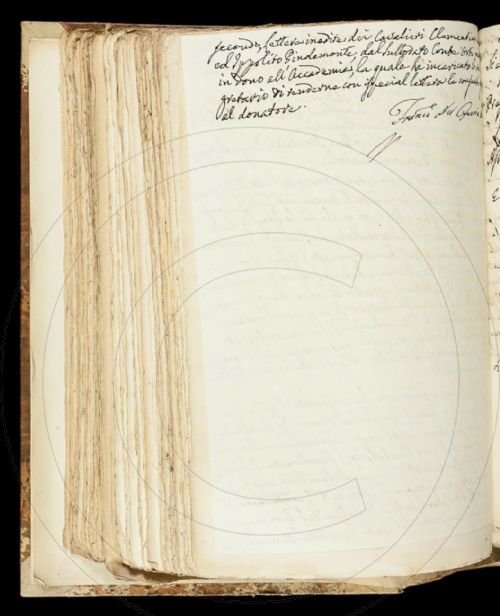 seconda, lettere inedite dei Cavalieri Clementin
ed Ippolito Pindemonte, dal sullodato Conte
in dono all'Accademia, la quale ha incaricato
gretario di renderne con ispecial lettera le
al donatore.
Franc. Del